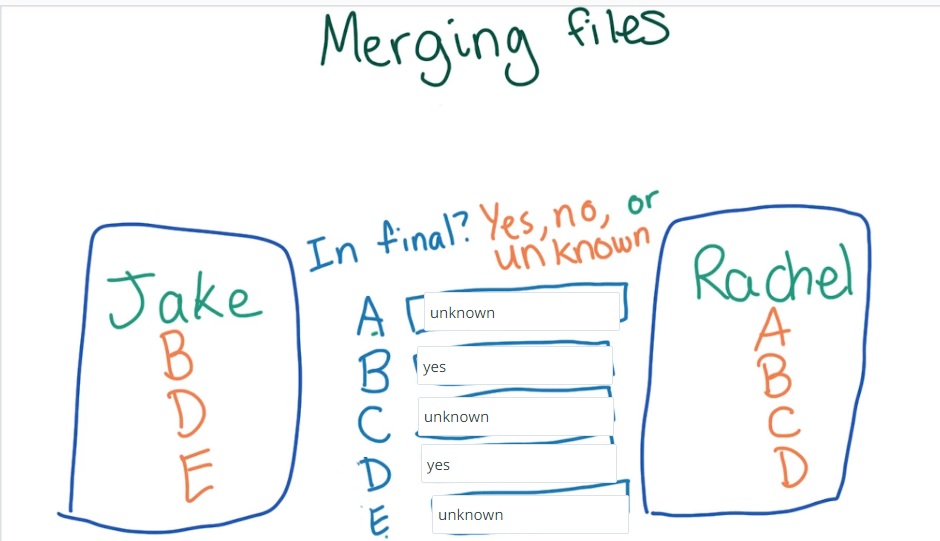 Merging files
In final? Yes, no, or
unknown
Jake
B
D
E
A unknown
B yes
C unknown
D yes
E unknown
Rachel
A
B
C
D